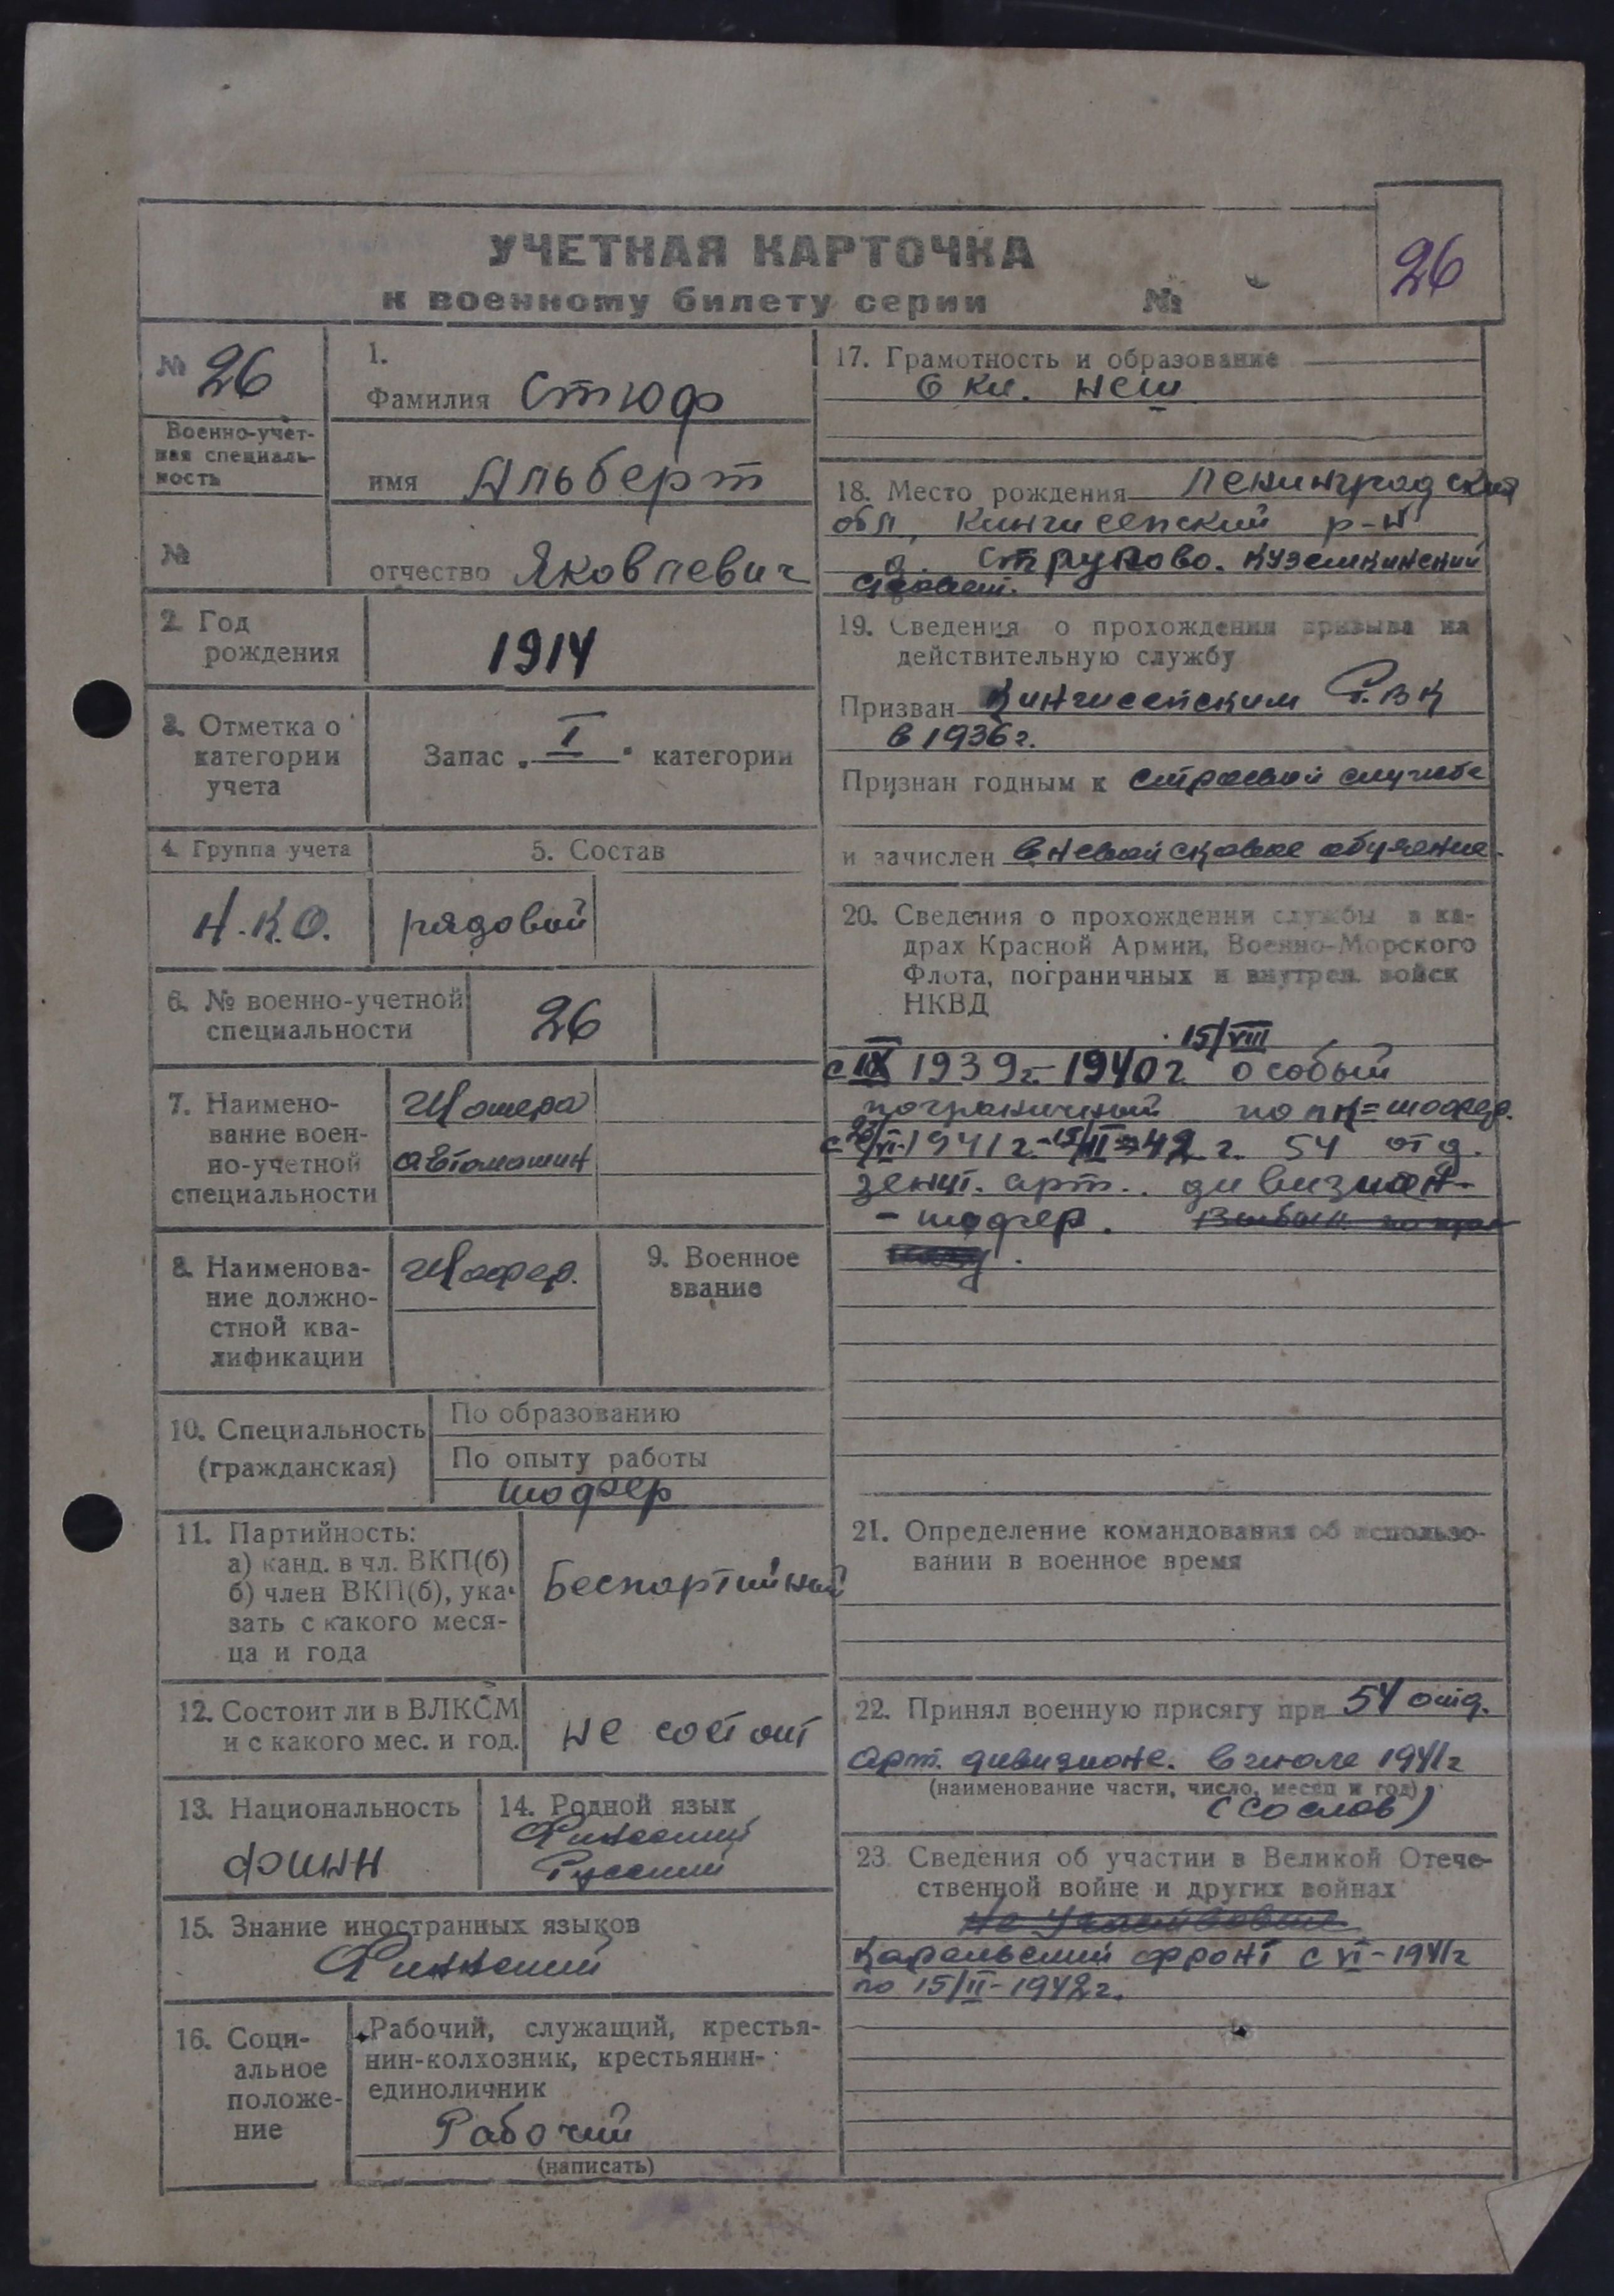 УЧЕТНАЯ КАРТОЧКА
к военному билету серии №
26
№ 26
Военно-учет-
ная специаль-
ность
№
1.
Фамилия Стюф
имя Альберт
отчество Яковлевич
2. Год
рождения
1914
3. Отметка о
категории
учета
Запас „ I " категории
4. Группа учета
5. Состав
Н.К.О.
рядовой
6. № военно-учетной
специальности
26
7. Наимено-
вание воен-
но-учетной
специальности
Шофера
автомашин
8. Наименова-
ние должно-
стной ква-
лификации
Шофер.
9. Военное
звание
10. Специальность
(гражданская)
По образованию
По опыту работы
шофер
11. Партийность:
а) канд. в чл. ВКП(б)
б) член ВКП(б), ука-
зать с какого меся-
ца и года
Беспартийный
12. Состоит ли в ВЛКСМ
и с какого мес. и год.
не состоит
13. Национальность
финн
14. Родной язык
Финский
Русский
15. Знание иностранных языков
Финский
16. Соци-
альное
положе-
ние
Рабочий, служащий, крестья-
нин-колхозник, крестьянин-
единоличник
Рабочий
(написать)
17. Грамотность и образование
6 кл. нсш
18. Место рождения Ленинградская
обл, Кингисепский р-н
д. Струпово. Куземкинский
19. Сведения о прохождении призыва на
действительную службу
Призван Кингисепским Р.В.К
в 1936 г.
Признан годным к строевой службе
и зачислен вневойсковое обучение.
20. Сведения о прохождении службы в ка-
драх Красной Армии, Военно-Морского
Флота, пограничных и внутрен. войск
НКВД
15/VIII
с IX 1939 г. - 1940 г особый
пограничный полк = шофер.
VI-1941 г. - 15/II-42 г. 54 отд.
зенит. арт. дивизион-
- шофер.
21. Определение командования об использо-
вании в военное время
22. Принял военную присягу при 54 отд.
арт. дивизионе. в июле 1941 г
(наименование части, число, месяц и год)
(со слов)
23. Сведения об участии в Великой Отече-
ственной войне и других войнах
Не участвовал
Карельский фронт с VI-1941 г
по 15/II-1942 г.